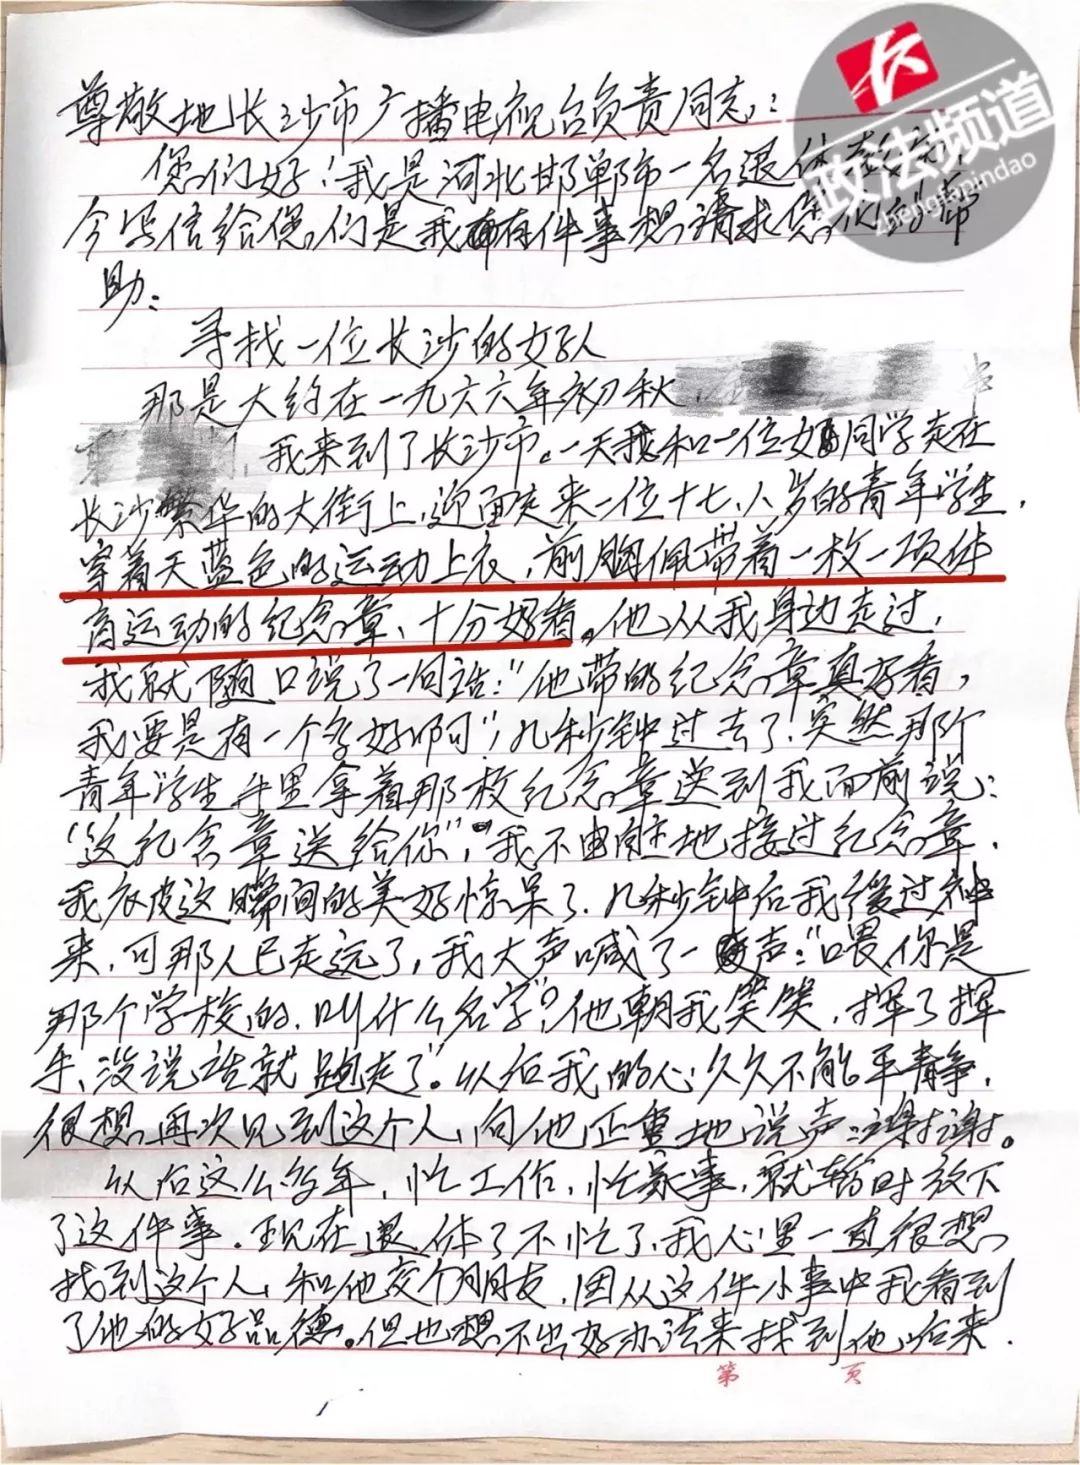 尊敬地长沙市广播电视台负责同志:
您们好!我是河北邯郸市一名退休
今写信给您们是我有件事想请求您们的帮
助:
寻找一位长沙的好人
那是大约在一九六六年初秋,
我来到了长沙市。一天我和一位女同学走在
长沙繁华的大街上,迎面走来一位十七、八岁的青年学生,
穿着天蓝色的运动上衣,前胸佩带着一枚一项体
育运动的纪念章、十分好看。他从我身边走过,
我就随口说了一句话:"他带的纪念章真好看,
我要是有一个多好啊",几秒钟过去了,突然那个
青年学生手里拿着那枚纪念章送到我面前说:
"这纪念章送给你",我不由自主地接过纪念章,
我衣皮这瞬间的美好惊呆了,几秒钟后我缓过神
来,可那人已走远了,我大声喊了一声:"喂你是
那个学校的,叫什么名字?他朝我笑笑,挥了挥
手、没说话就跑走了"。从后我的心久久不能平静,
很想再次见到这个人,向他正重地说声:谢谢。
从后这么多年,忙工作,忙家事,就暂时放下
了这件事。现在退休了不忙了,我心里一直很想
找到这个人,和他交个朋友,因从这件小事中我看到
了他的好品德。但也想不出好办法来找到他,后来
第 页
长
政法频道
zhengfapindao